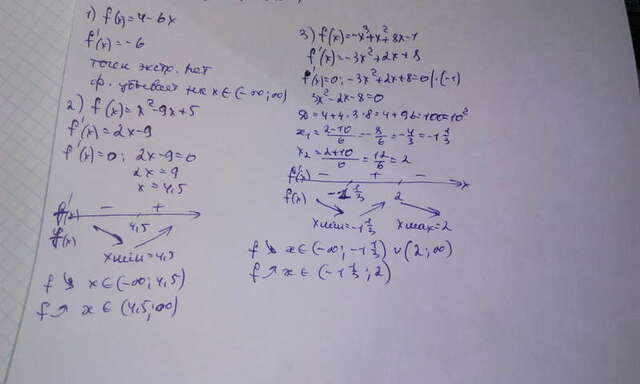 1) f(x)=4-6x
f'(x)=-6
точек экстр. нет
ф. убывает на x∈(-∞;∞)
2) f(x)=x²-9x+5
f'(x)=2x-9
f'(x)=0; 2x-9=0
2x=9
x=4,5
f'(x) - +
4,5
f(x)
xmin=4,5
f ↘ x∈(-∞; 4,5)
f ↗ x∈(4,5;∞)
3) f(x)=-x³+x²+8x-1
f'(x)=-3x²+2x+8
f'(x)=0; -3x²+2x+8=0 |·(-1)
3x²-2x-8=0
D=4+4·3·8=4+96=100=10²
x₁=(2-10)/6=-8/6=-4/3=-1 1/3
x₂=(2+10)/6=12/6=2
f'(x) - + - x
-1 1/3 2
f(x)
xmin=-1 1/3 xmax=2
f ↘ x∈(-∞; -1 1/3) ∪ (2;∞)
f ↗ x∈(-1 1/3; 2)